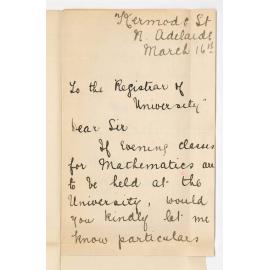 Kermode St
N. Adelaide
March 16th
To the Registrar of
University"
Dear Sir
If Evening classes
for Mathematics are
to be held at the
University, would
you kindly let me
know particulars